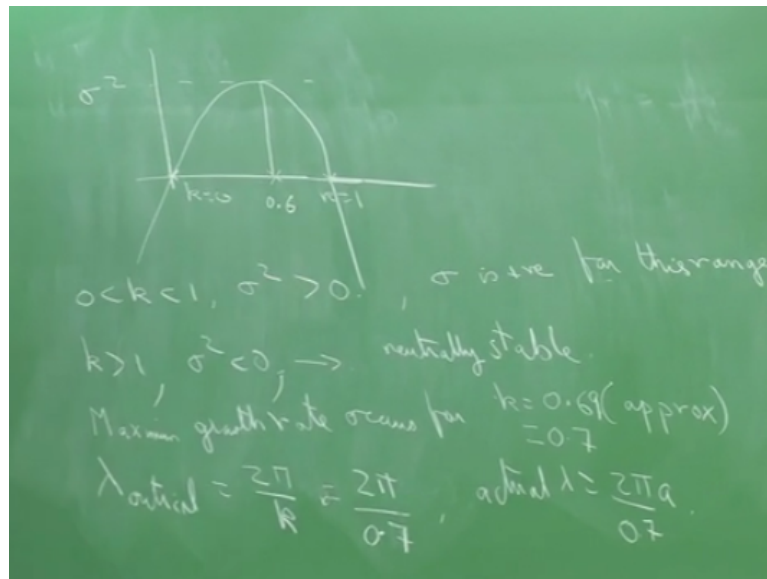 σ²
k=0 0.6 k=1
0<k<1, σ²>0, σ is +ve for this range
k>1, σ²<0, → neutrally stable.
Maximum growth rate occurs for k=0.69 (approx)
=0.7
λcritical = 2π/k = 2π/0.7, actual λ = 2πa/0.7